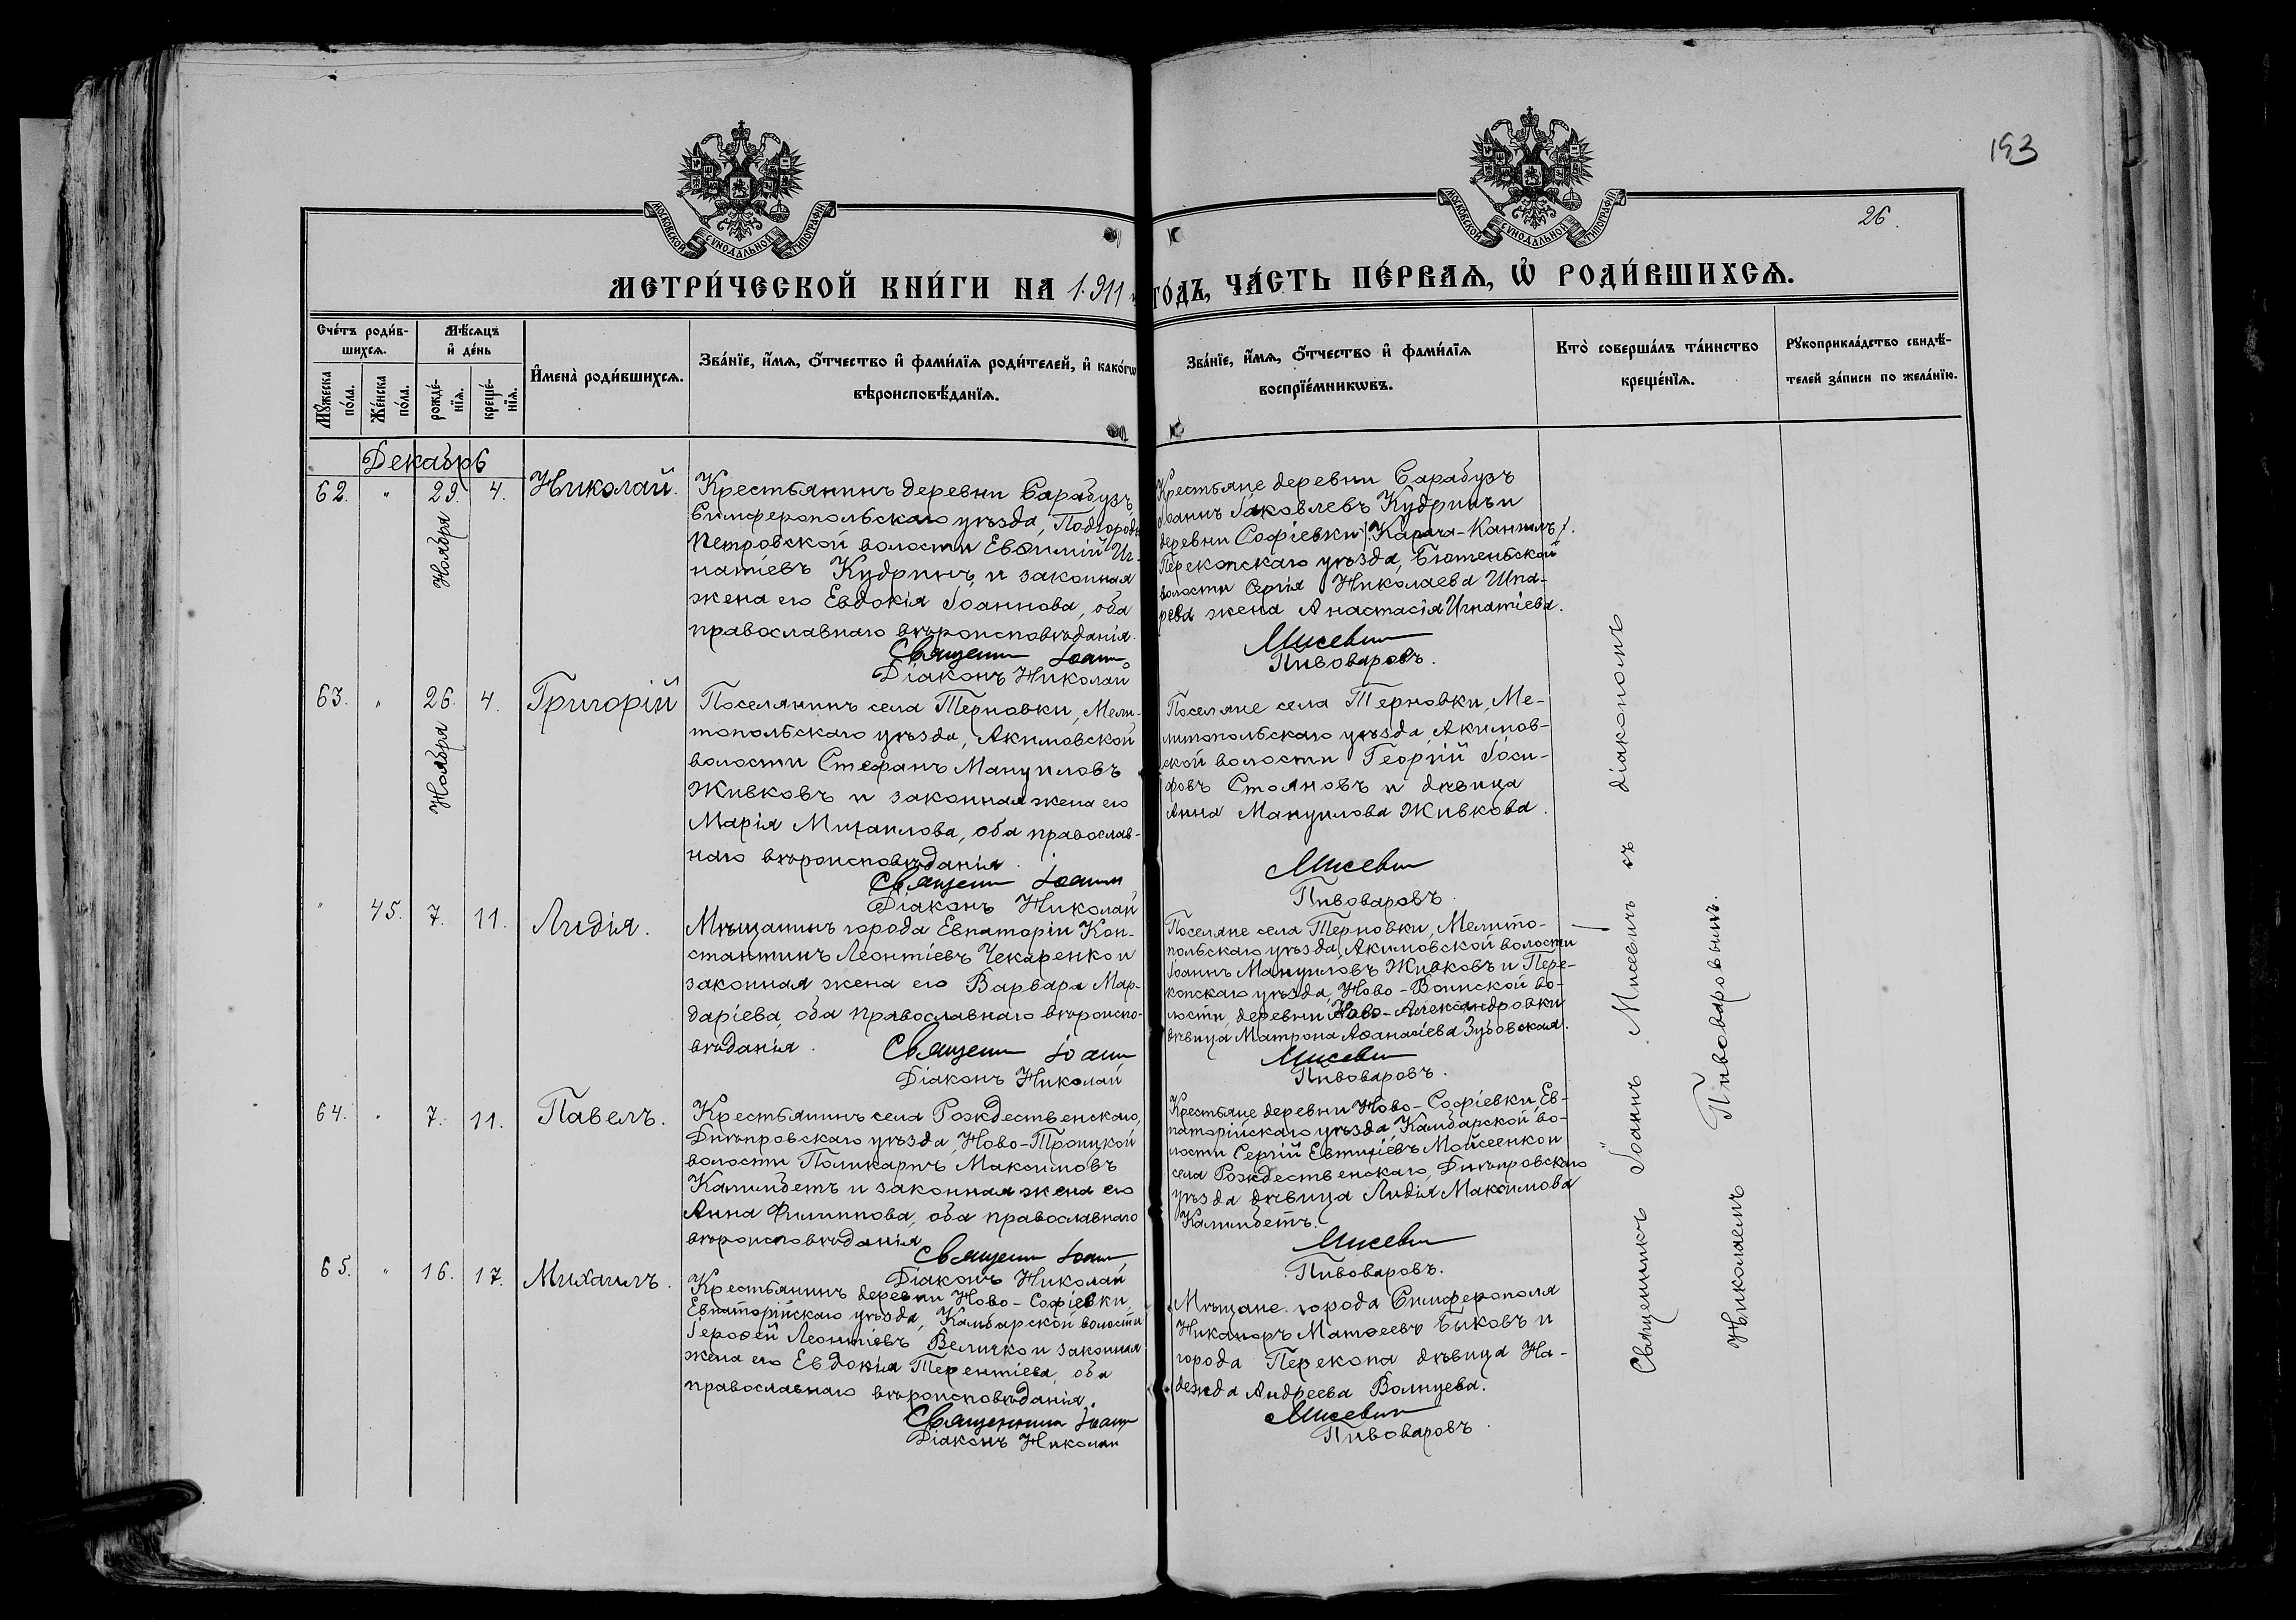 193
26.
МОСКОВСКОЙ СѴНОДАЛЬНОЙ ТИПОГРАФІИ
МОСКОВСКОЙ СѴНОДАЛЬНОЙ ТИПОГРАФІИ
МЕТРИ́ЧЕСКОЙ КНИ́ГИ НА 1911 ГО́ДЪ, ЧА́СТЬ ПЕ́РВАѦ, Ѡ҆ РОДИ́ВШИХСѦ.
Сче́тъ роди́в-
шихсѧ.
Мꙋ́жеска
по́ла.
Же́нска
по́ла.
Мѣ́сѧцъ
и҆ де́нь
рожде́-
нїѧ.
креще́-
нїѧ.
И҆мена̀ роди́вшихсѧ.
Зва́нїе, и҆́мѧ, ѻ҆́тчество и҆ фами́лїѧ роди́телей, и҆ како́гѡ
вѣроисповѣ́данїѧ.
Зва́нїе, и҆́мѧ, ѻ҆́тчество и҆ фами́лїѧ
воспрїе́мникѡвъ.
Кто̀ соверша́лъ та́инство
креще́нїѧ.
Рꙋкоприкла́дство свидѣ́-
телей за́писи по жела́нїю.
Декабрь
62. " 29. 4. Николай.
Ноября
Крестьянинъ деревни Сарабузъ,
Симферопольскаго уѣзда, Подгородн
Петровской волости Евѳимій Иг-
натіевъ Кудринъ, и законная
жена его Евдокія Іоаннова, оба
православнаго вѣроисповѣданія.
Священ Іоанн
Діаконъ Николай
Крестьяне деревни Сарабузъ
Іоаннъ Іаковлевъ Кудринъ и
деревни Софіевки /Карача-Кангилъ/.
Перекопскаго уѣзда, Бютеньской
волости Сергія Николаева Шпа-
рева жена Анастасія Игнатіева.
Мисевич
Пивоваровъ.
63. " 26. 4. Григорій
Ноября
Поселянинъ села Терновки, Мели-
топольскаго уѣзда, Акимовской
волости Стефанъ Мануиловъ
Живковъ и законная жена его
Марія Михаилова, оба православ-
наго вѣроисповѣданія.
Священ Іоанн
Діаконъ Николай
Поселяне села Терновки, Ме-
литопольскаго уѣзда, Акимов-
ской волости Георгій Іоси-
фовъ Стояновъ и дѣвица
Анна Мануилова Живкова.
Мисевич
Пивоваровъ.
" 45. 7. 11. Лидія.
Мѣщанинъ города Евпаторіи Кон-
стантинъ Леонтіевъ Чекаренко и
законная жена его Варвара Мар-
даріева, оба православнаго вѣроиспо-
вѣданія.
Священ Іоанн
Діаконъ Николай
Поселяне села Терновки, Мелито-
польскаго уѣзда, Акимовской волости
Іоаннъ Мануиловъ Живковъ и Пере-
копскаго уѣзда, Ново-Воинской во-
лости, деревни Ново-Александровки
дѣвица Матрона Аѳанасіева Зубовская.
Мисевич
Пивоваровъ.
64. " 7. 11. Павелъ.
Крестьянинъ села Рождественскаго,
Днѣпровскаго уѣзда, Ново-Троицкой
волости Поликарпъ Максимовъ
Калиндетъ и законная жена его
Анна Филиппова, оба православнаго
вѣроисповѣданія
Священ Іоанн
Діаконъ Николай
Крестьяне деревни Ново-Софіевки, Ев-
паторійскаго уѣзда, Камбарской во-
лости Сергій Евтихіевъ Мойсеенко и
села Рождественскаго, Днѣпровскаго
уѣзда дѣвица Лидія Максимова
Калиндетъ.
Мисевич
Пивоваровъ.
65. " 16. 17. Михаилъ.
Крестьянинъ деревни Ново-Софіевки,
Евпаторійскаго уѣзда, Камбарской волости
Іероѳей Леонтіевъ Величко и законная
жена его Евдокія Терентіева, оба
православнаго вѣроисповѣданія.
Священник Іоанн
Діаконъ Николай
Мѣщане города Симферополя
Никаноръ Матѳеевъ Быковъ и
города Перекопа дѣвица На-
дежда Андреева Волнцева.
Мисевич
Пивоваровъ.
Священникъ Іоаннъ Мисевичъ съ діакономъ
Николаемъ Пивоваровымъ.